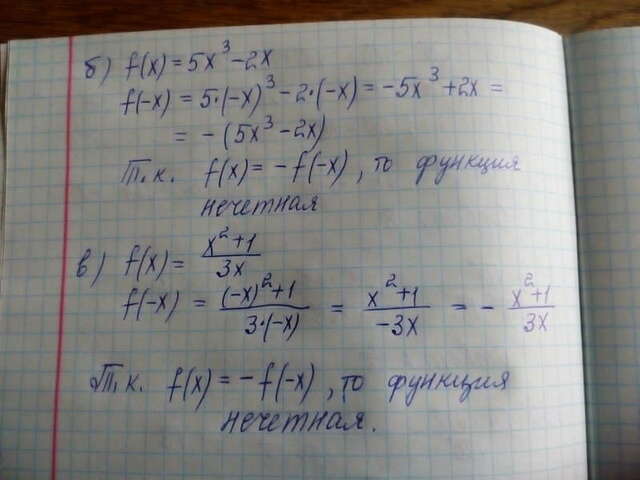 б) f(x) = 5x³ - 2x
f(-x) = 5·(-x)³ - 2·(-x) = -5x³ + 2x =
= - (5x³ - 2x)
Т.к. f(x) = - f(-x), то функция
нечетная
в) f(x) = (x² + 1)/(3x)
f(-x) = ((-x)² + 1)/(3·(-x)) = (x² + 1)/(-3x) = - (x² + 1)/(3x)
Т.к. f(x) = - f(-x), то функция
нечетная.